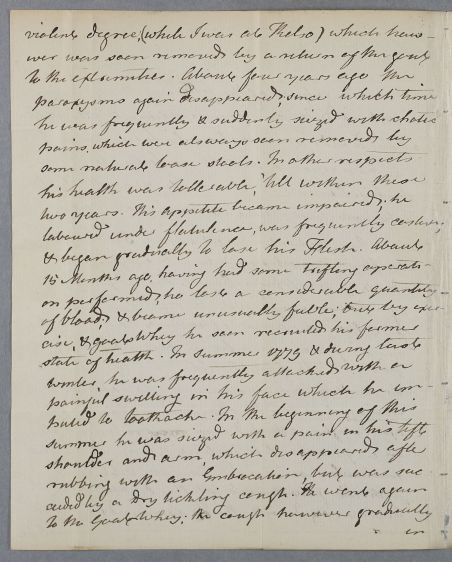 violent degree, (while I was at Thelso) which how-
ever was soon removed by a return of the gout
to the extremities. About four years ago the
paroxysms again disappeared, since which time
he was frequently & suddenly siezed with cholic
pains, which were always soon removed by
some natural loose stools. In other respects
his health was tollerable, till within these
two years. His appetite became impaired; he
laboured under flatulence, was frequently costive,
& began gradually to lose his Flesh. About
15 Months ago, having had some trifling operati-
on performed, he lost a considerable quantity
of blood, & became unusually feeble; but by exer-
cise, & goat Whey he soon recruited his former
state of health. In Summer 1779 & during last
winter, he was frequently attacked with a
painful swelling in his face which he im-
puted to toothache. In the beginning of this
summer he was siezed with a pain in his left
shoulder and arm, which disappeared after
rubbing with an Embrocation, but was suc-
ceeded by a Dry tickling cough. He went again
to the Goat Whey; the cough however gradually
in